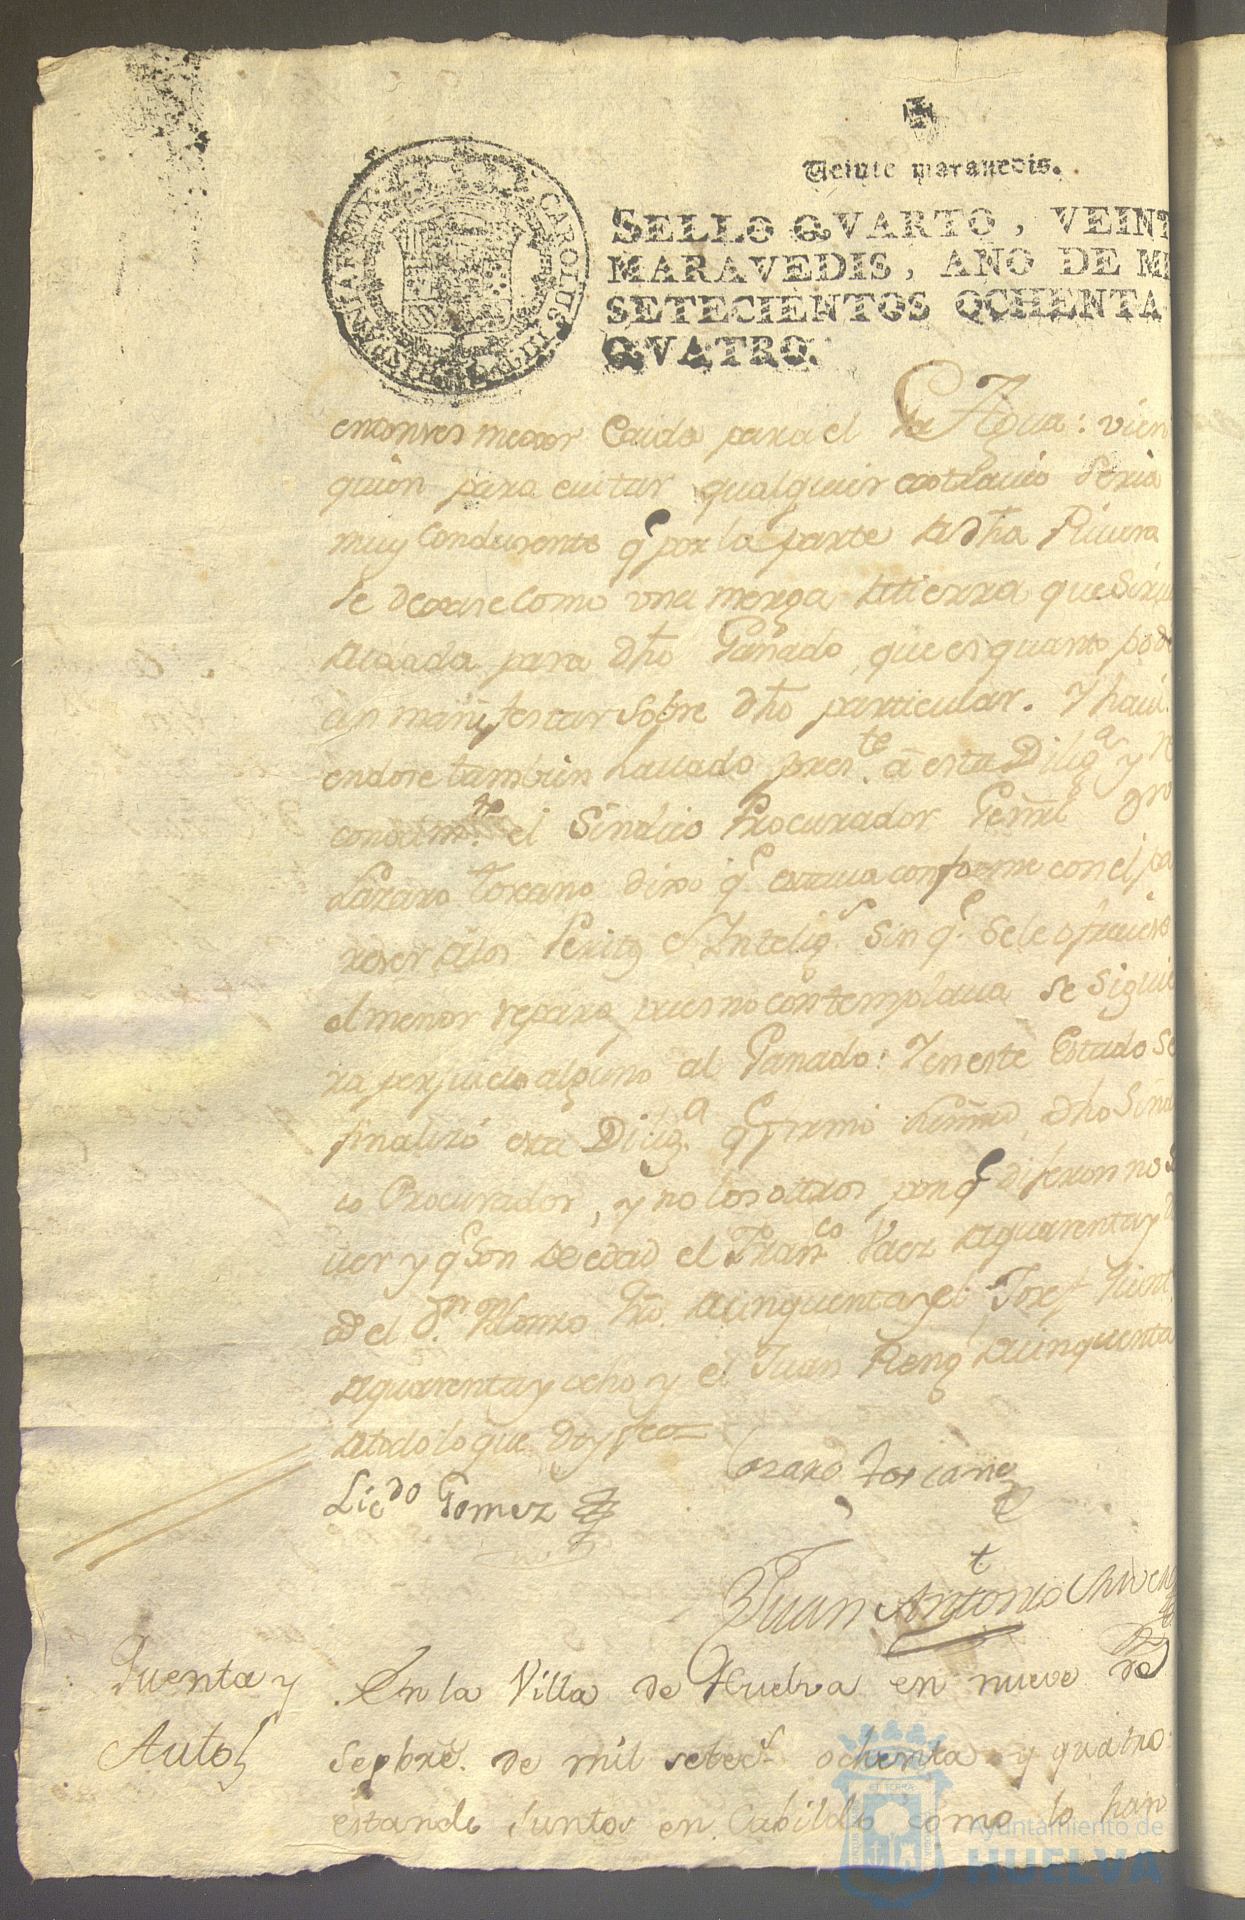 Veinte maravedis.
SELLO QVARTO, VEINT
MARAVEDIS, AÑO DE MI
SETECIENTOS OCHENTA
QVATRO.
CAROLUS III
entonces mexor Caida para el Agua: vien
quien para euitar qualquier seria
muy Condusente q.e por la parte de dha Riuera
se dexase como vna merga de tierra que sirv
para dho Ganado, que es quanto pod
an manifestar sobre dho particular. Y haui
endose tambien hauado pres.te a esta Dilig.a y
conosim.to el Sindico Procurador Genrl
Lazaro Toscano dixo q.e estaua conforme con el pa
reser de los Peritos Intelig.s sin q.e se le ofreciese
el menor reparo, pues no contemplaua se siguie
ra perjuicio alguno al Ganado: Y en este Estado se
finalizó esta Dilig.a q.e firmó dho Sindi
co Procurador, y no los otros porq.e dijeron no
uer y q.e son de edad el Fran.co Vaez de quarenta y
el d.n Alonso de cinquenta y el Josef
de quarenta y ocho y el Juan Reng.l de cinquenta
de todo lo que doy fee=
Lic.do Gomez
Lazaro toscano
Juan Antonio
Quenta y
Autos
En la Villa de Huelva en nueve de
Sepbre. de mil setec.s ochenta y quatro
estando Juntos en Cabildo como lo han
Ayuntamiento de
HUELVA